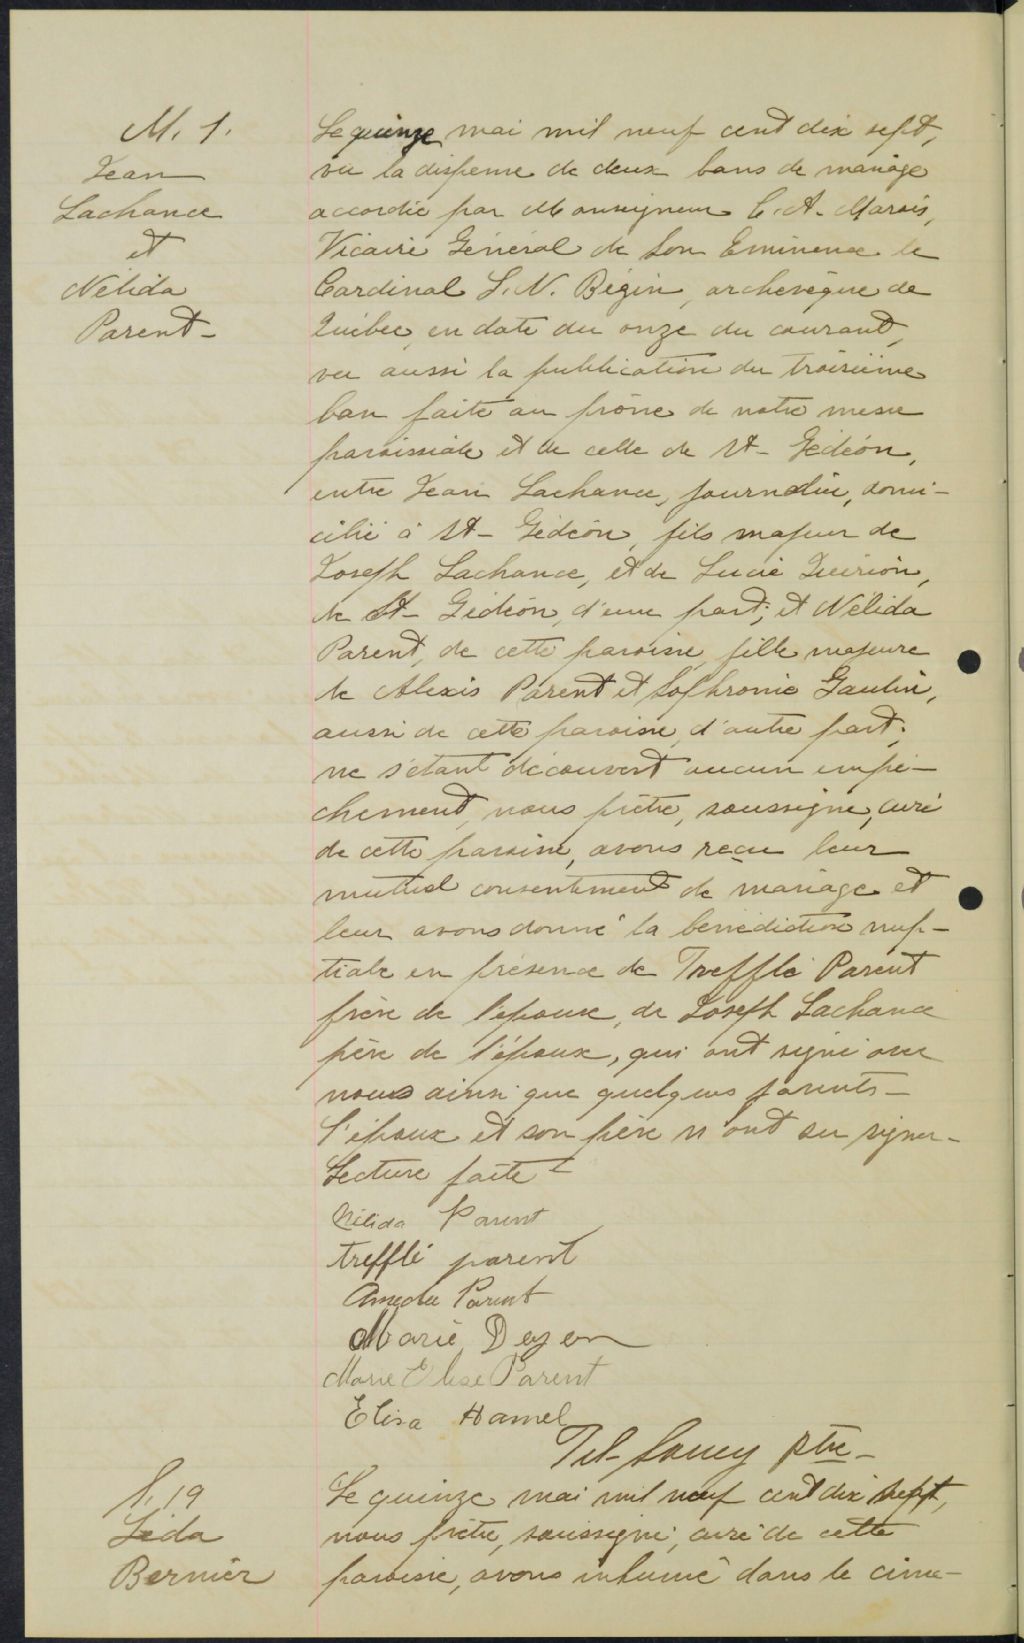 M. 1.
Jean
Lachance
et
Nélida
Parent-
Le quinze mai mil neuf cent dix sept,
vu la dispense de deux bans de mariage
accordée par Monseigneur C. A. Marois,
Vicaire Général de Son Eminence le
Cardinal L. N. Bégin, archevêque de
Québec, en date du onze du courant,
vu aussi la publication du troisième
ban faite au prône de notre messe
paroissiale et de celle de St- Gédéon,
entre Jean Lachance, journalier, domi-
cilié à St- Gédéon, fils majeur de
Joseph Lachance, et de Lucie Quirion,
de St- Gédéon, d'une part; et Nélida
Parent, de cette paroisse, fille majeure
de Alexis Parent et Sophronie Gaulin,
aussi de cette paroisse, d'autre part;
ne s'étant découvert aucun empê-
chement, nous prêtre, soussigné, curé
de cette paroisse, avons reçu leur
mutuel consentement de mariage et
leur avons donné la bénédiction nup-
tiale en présence de Trefflé Parent
frère de l'épouse, de Joseph Lachance
père de l'époux, qui ont signé avec
nous ainsi que quelques parents-
l'époux et son père n'ont su signer-
Lecture faite
Nélida Parent
trefflé parent
Amedée Parent
Marie Doyon
Marie Elise Parent
Elisa Hamel
Tél- Soucy ptre-
S. 19
Léda
Bernier
Le quinze mai mil neuf cent dix sept,
nous prêtre, soussigné, curé de cette
paroisse, avons inhumé dans le cime-